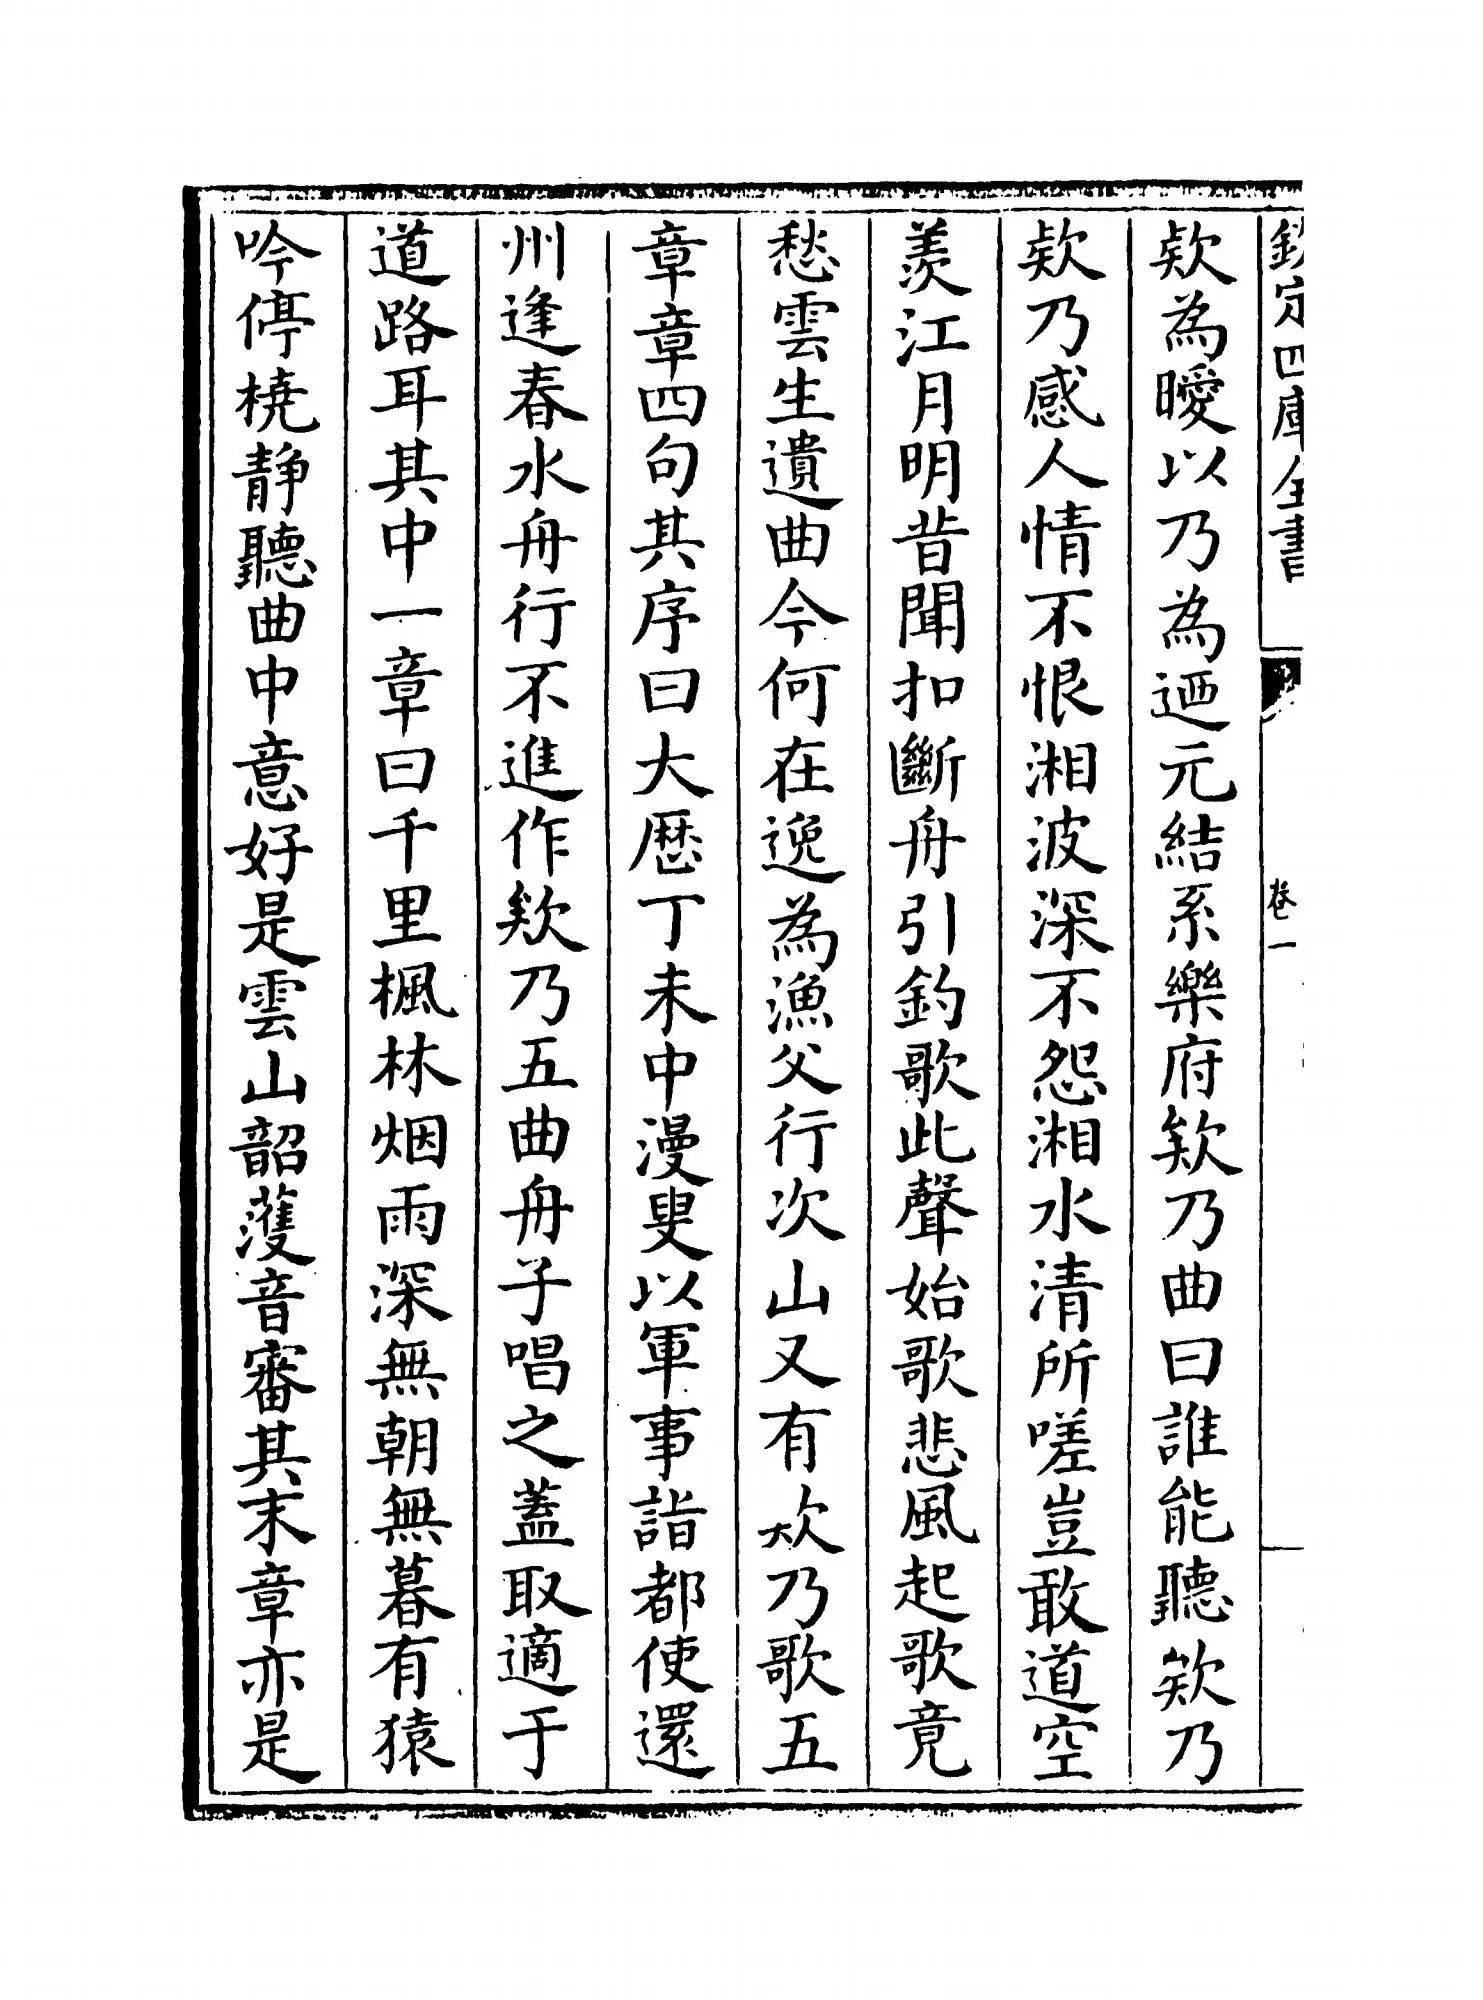 欽定四庫全書
卷一
欸為曖以乃為迺元結系樂府欸乃曲曰誰能聽欸乃
欸乃感人情不恨湘波深不怨湘水清所嗟豈敢道空
羨江月明昔聞扣斷舟引釣歌此聲始歌悲風起歌竟
愁雲生遺曲今何在逸為漁父行次山又有欸乃歌五
章章四句其序曰大厯丁未中漫叟以軍事詣都使還
州逢春水舟行不進作欸乃五曲舟子唱之蓋取適于
道路耳其中一章曰千里楓林烟雨深無朝無暮有猿
吟停橈靜聽曲中意好是雲山韶濩音審其末章亦是